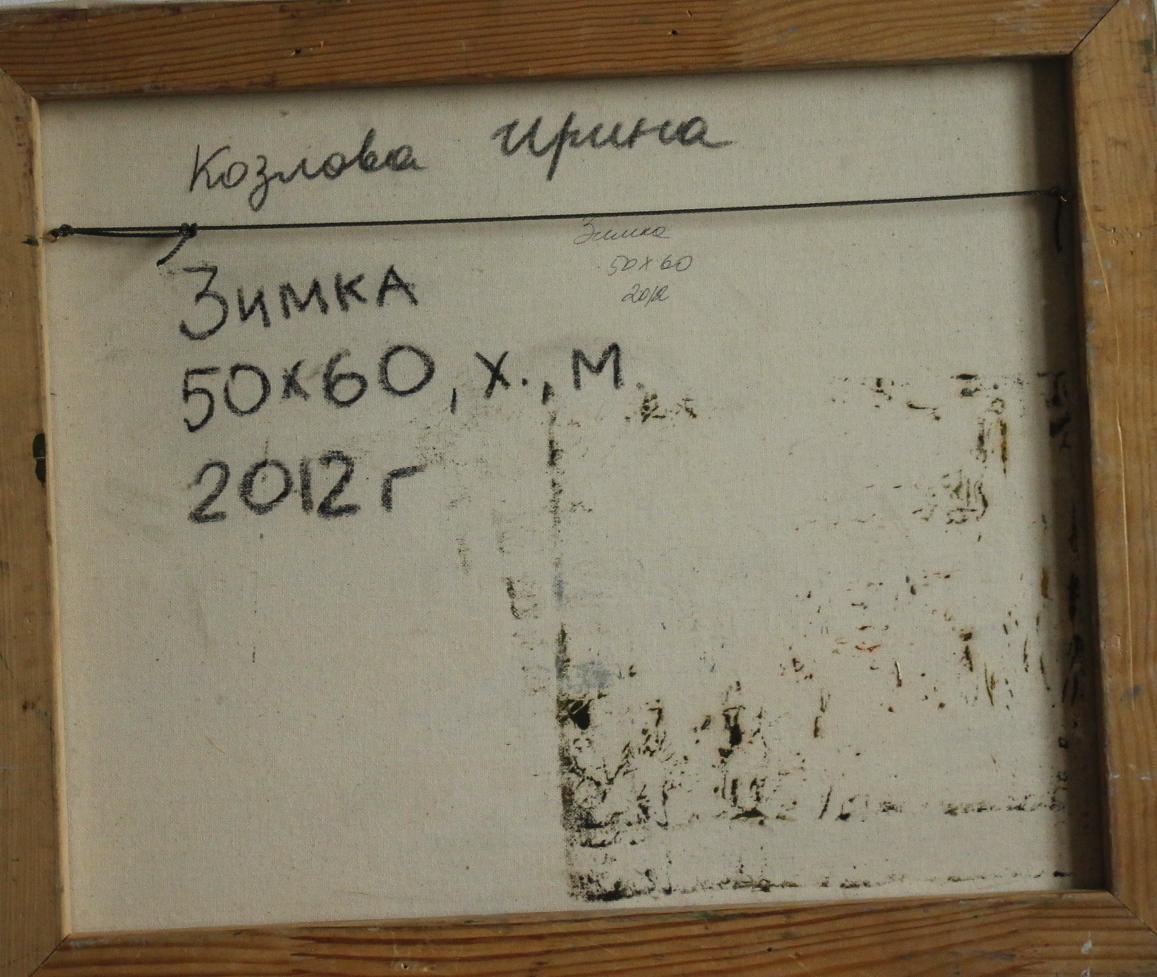 Козлова Ирина
Зимка
50x60
2012
Зимка
50x60, х., м.
2012 г